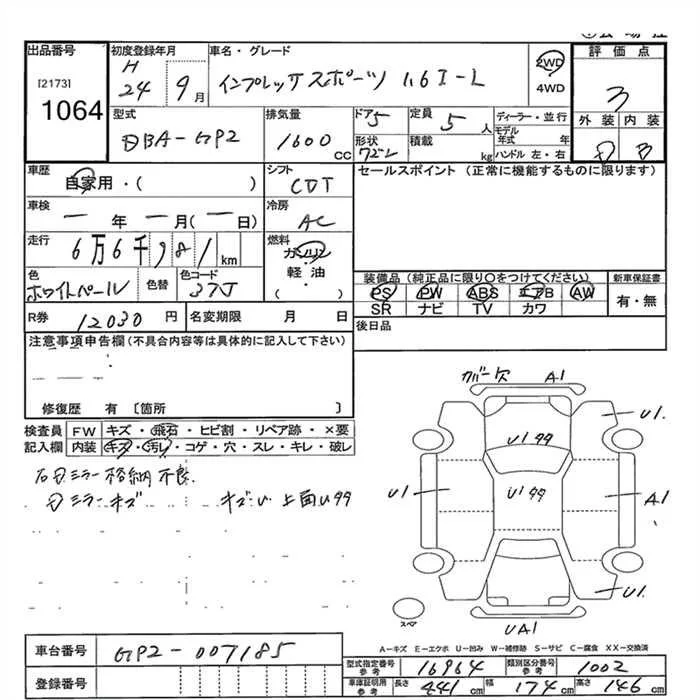 出品番号 初度登録年月 車名・グレード 2WD 4WD 評価点
[2173] 1064
H 24 9月 インプレッサスポーツ 1.6I-L 3
型式 排気量 ドア 5 定員 5人 ディーラー・並行 外装 内装
DBA-GP2 1600cc 形状 積載 kg モデル年式 年 ハンドル 左・右 D B
車歴 自家用・( ) シフト CDT セールスポイント (正常に機能するものに限ります)
車検 ー年ー月(ー日) 冷房 AC
走行 6万6千981km 燃料 ガソリン 軽油 ( )
色 ホワイトパール 色替 色コード 37J
装備品 (純正品に限り○をつけてください) 新車保証書
PS PW ABS エアB AW 有・無
SR ナビ TV カワ
R券 12030円 名変期限 月 日 後日品
注意事項申告欄(不具合内容等は具体的に記入して下さい)
修復歴 有 〔箇所 〕
検査員 FW キズ・飛石・ヒビ割・リペア跡・×要
記入欄 内装 キズ・汚れ・コゲ・穴・スレ・キレ・破し
右Dミラー格納不良
Dミラーキズ キズU 上面U99
カバー欠 A1
U1
U199
U1 U199 A1
U1
スペア
UA1
A-キズ E-エクボ U-凹み W-補修跡 S-サビ C-腐食 XX-交換済
車台番号 GP2-007185
型式指定番号 参考 16964 類別区分番号 参考 1002
登録番号 車庫証明用 参考 長さ 441cm 幅 174cm 高さ 146cm